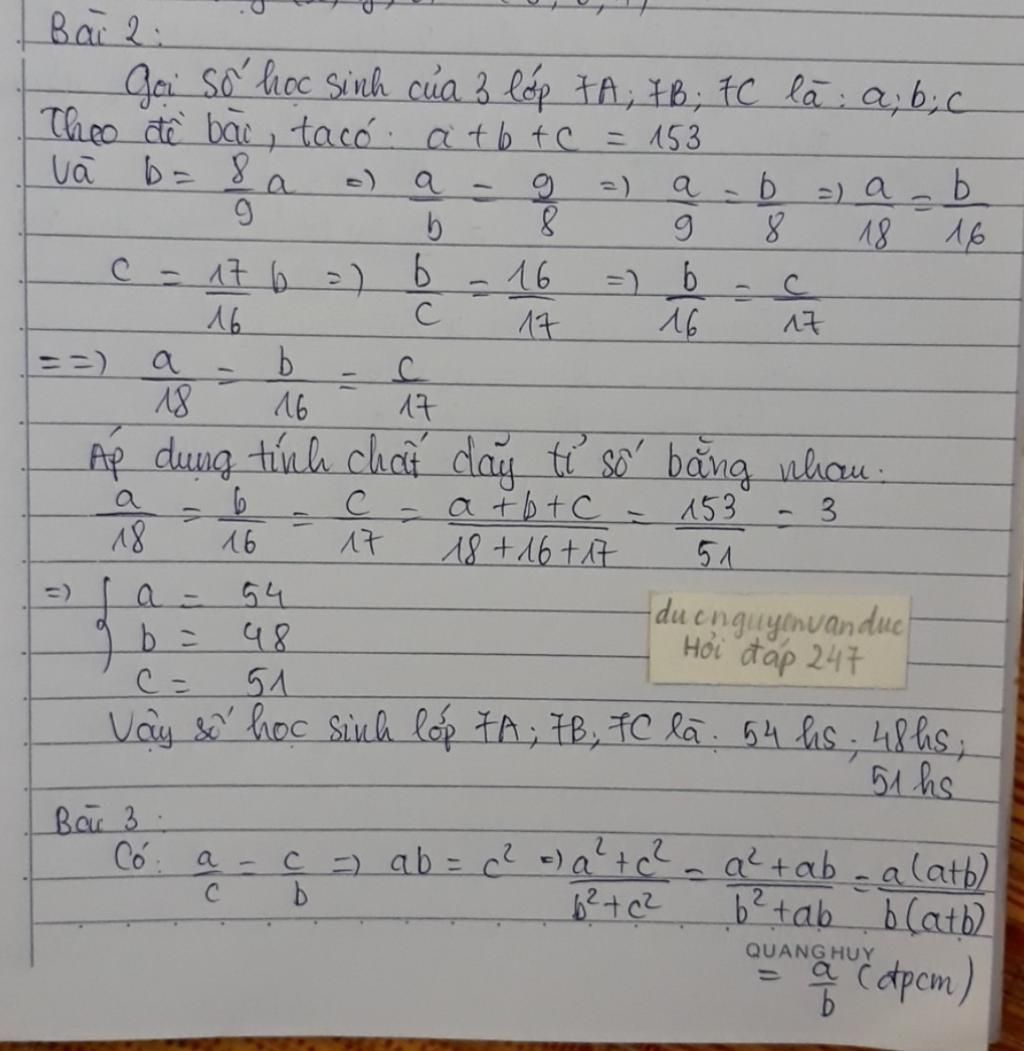 Bài 2:
Gọi số học sinh của 3 lớp 7A; 7B; 7C là: a; b; c
Theo đề bài, ta có: a + b + c = 153
Và b = 8/9 a => a/b = 9/8 => a/9 = b/8 => a/18 = b/16
c = 17/16 b => b/c = 16/17 => b/16 = c/17
==> a/18 = b/16 = c/17
Áp dụng tính chất dãy tỉ số bằng nhau:
a/18 = b/16 = c/17 = (a + b + c)/(18 + 16 + 17) = 153/51 = 3
=> { a = 54
b = 48
c = 51
ducnguyenvanduc
Hỏi đáp 247
Vậy số học sinh lớp 7A; 7B; 7C là: 54 hs; 48 hs;
51 hs
Bài 3:
Có: a/c = c/b => ab = c² => (a² + c²)/(b² + c²) = (a² + ab)/(b² + ab) = a(a+b)/b(a+b)
QUANG HUY
= a/b (đpcm)